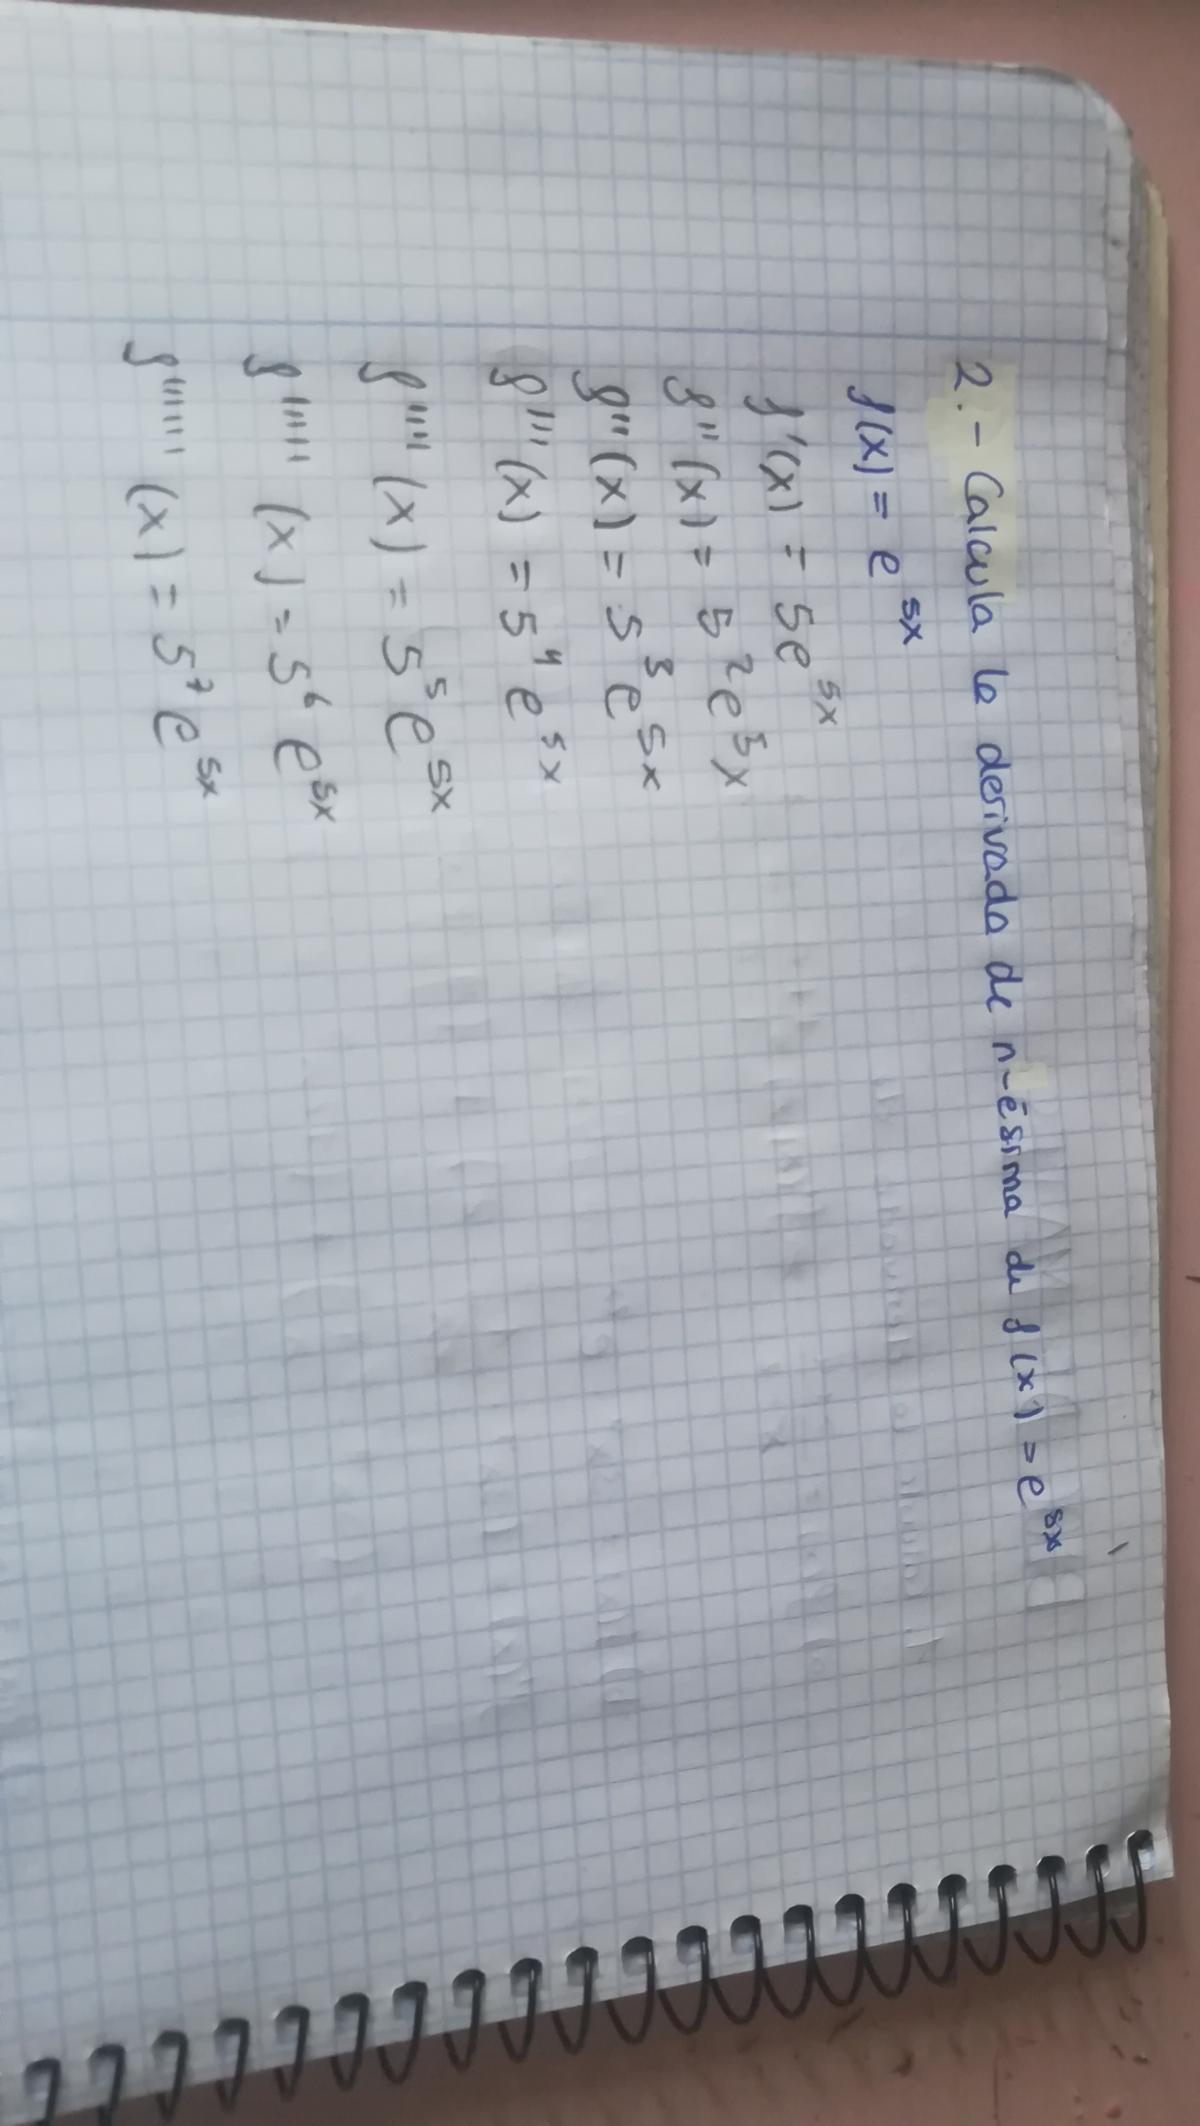 2.- Calcula la derivada de n-ésima de f(x) = e^5x
f(x) = e^5x
f'(x) = 5e^5x
f''(x) = 5^2 e^5x
f'''(x) = 5^3 e^5x
f''''(x) = 5^4 e^5x
f'''''(x) = 5^5 e^5x
f''''''(x) = 5^6 e^5x
f'''''''(x) = 5^7 e^5x